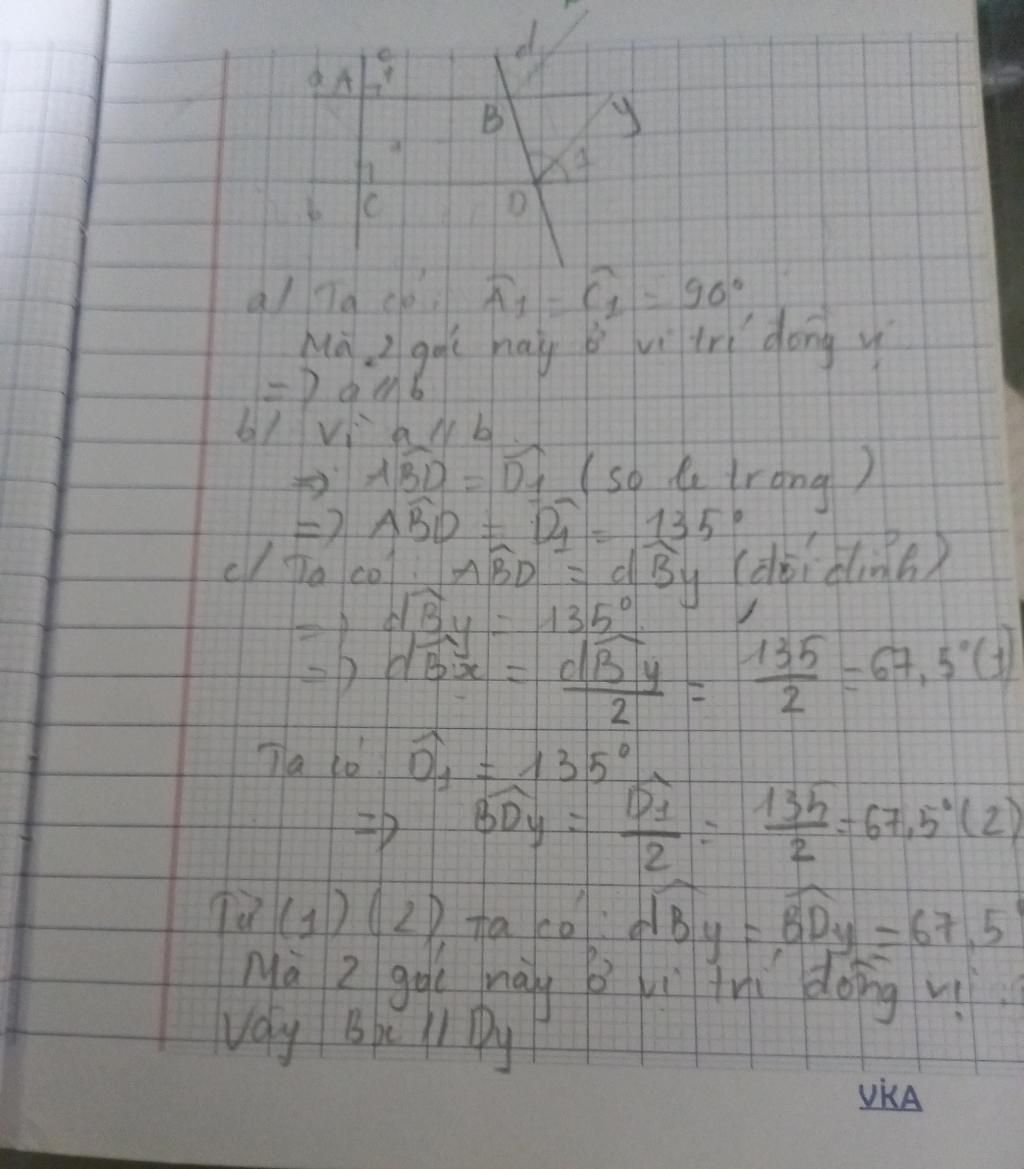 d
c
a A 1
B
y
1
b C D
a/ Ta có: Â1 = Ĉ1 = 90°
Mà 2 góc này ở vị trí đồng vị
=> a // b
b/ Vì a // b
=> AB̂D = D̂1 (so le trong)
=> AB̂D = D̂1 = 135°
c/ Ta có: AB̂D = dB̂y (đối đỉnh)
=> dB̂y = 135°
=> dB̂x = dB̂y/2 = 135/2 = 67,5° (1)
Ta có D̂1 = 135°
=> BD̂y = D̂1/2 = 135/2 = 67,5° (2)
Từ (1) (2) ta có: dB̂y = BD̂y = 67,5
Mà 2 góc này ở vị trí đồng vị
Vậy Bx // Dy
VIKA